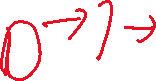 0 → 1 →